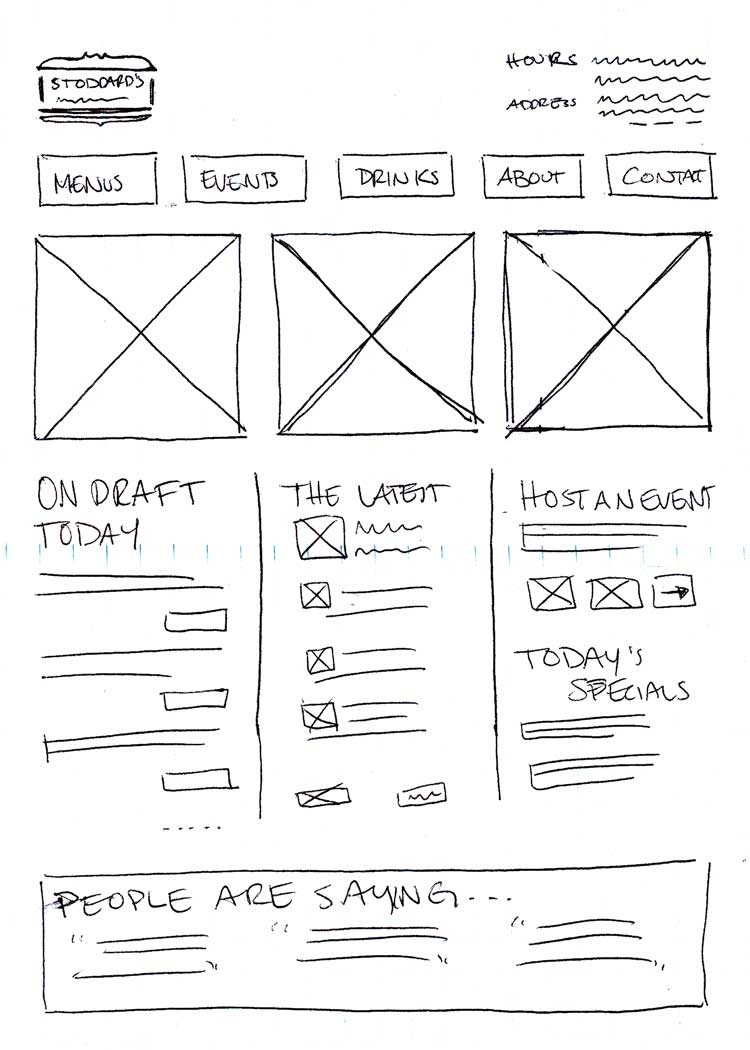 STODDARD'S
HOURS
ADDRESS
MENUS
EVENTS
DRINKS
ABOUT
CONTAT
ON DRAFT
TODAY
THE LATEST
HOST AN EVENT
TODAY'S
SPECIALS
PEOPLE ARE SAYING...